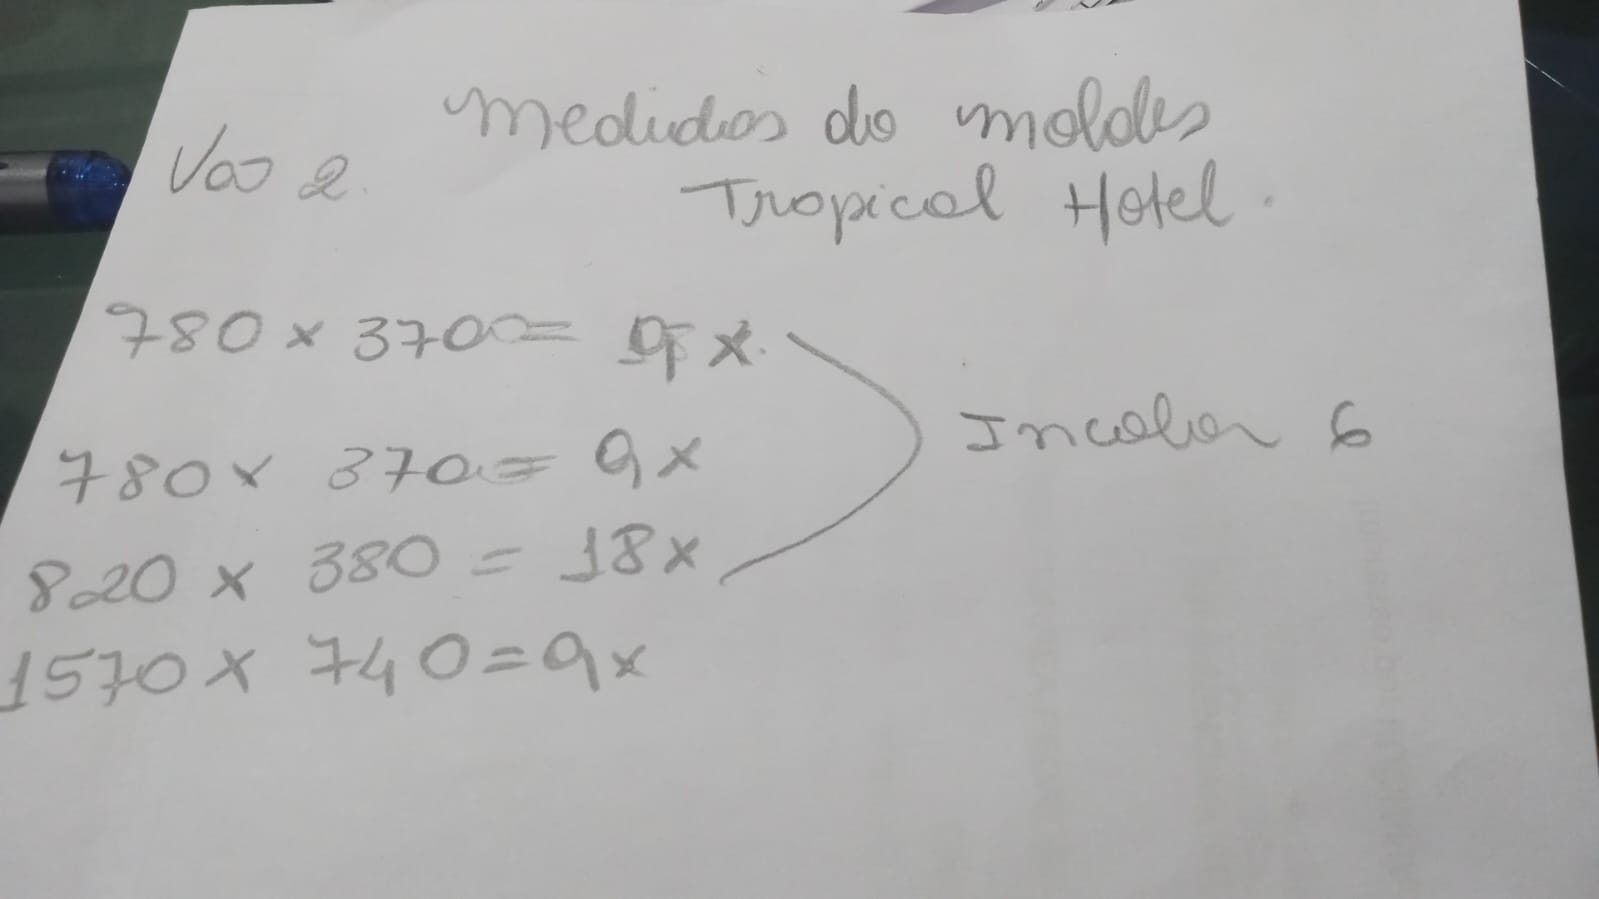 Medidas do moldes
Vão 2.
Tropical Hotel.
780 x 370 = x.
780 x 370 = 9x
Incolor 6
820 x 380 = 18x
1570 x 740 = 9x